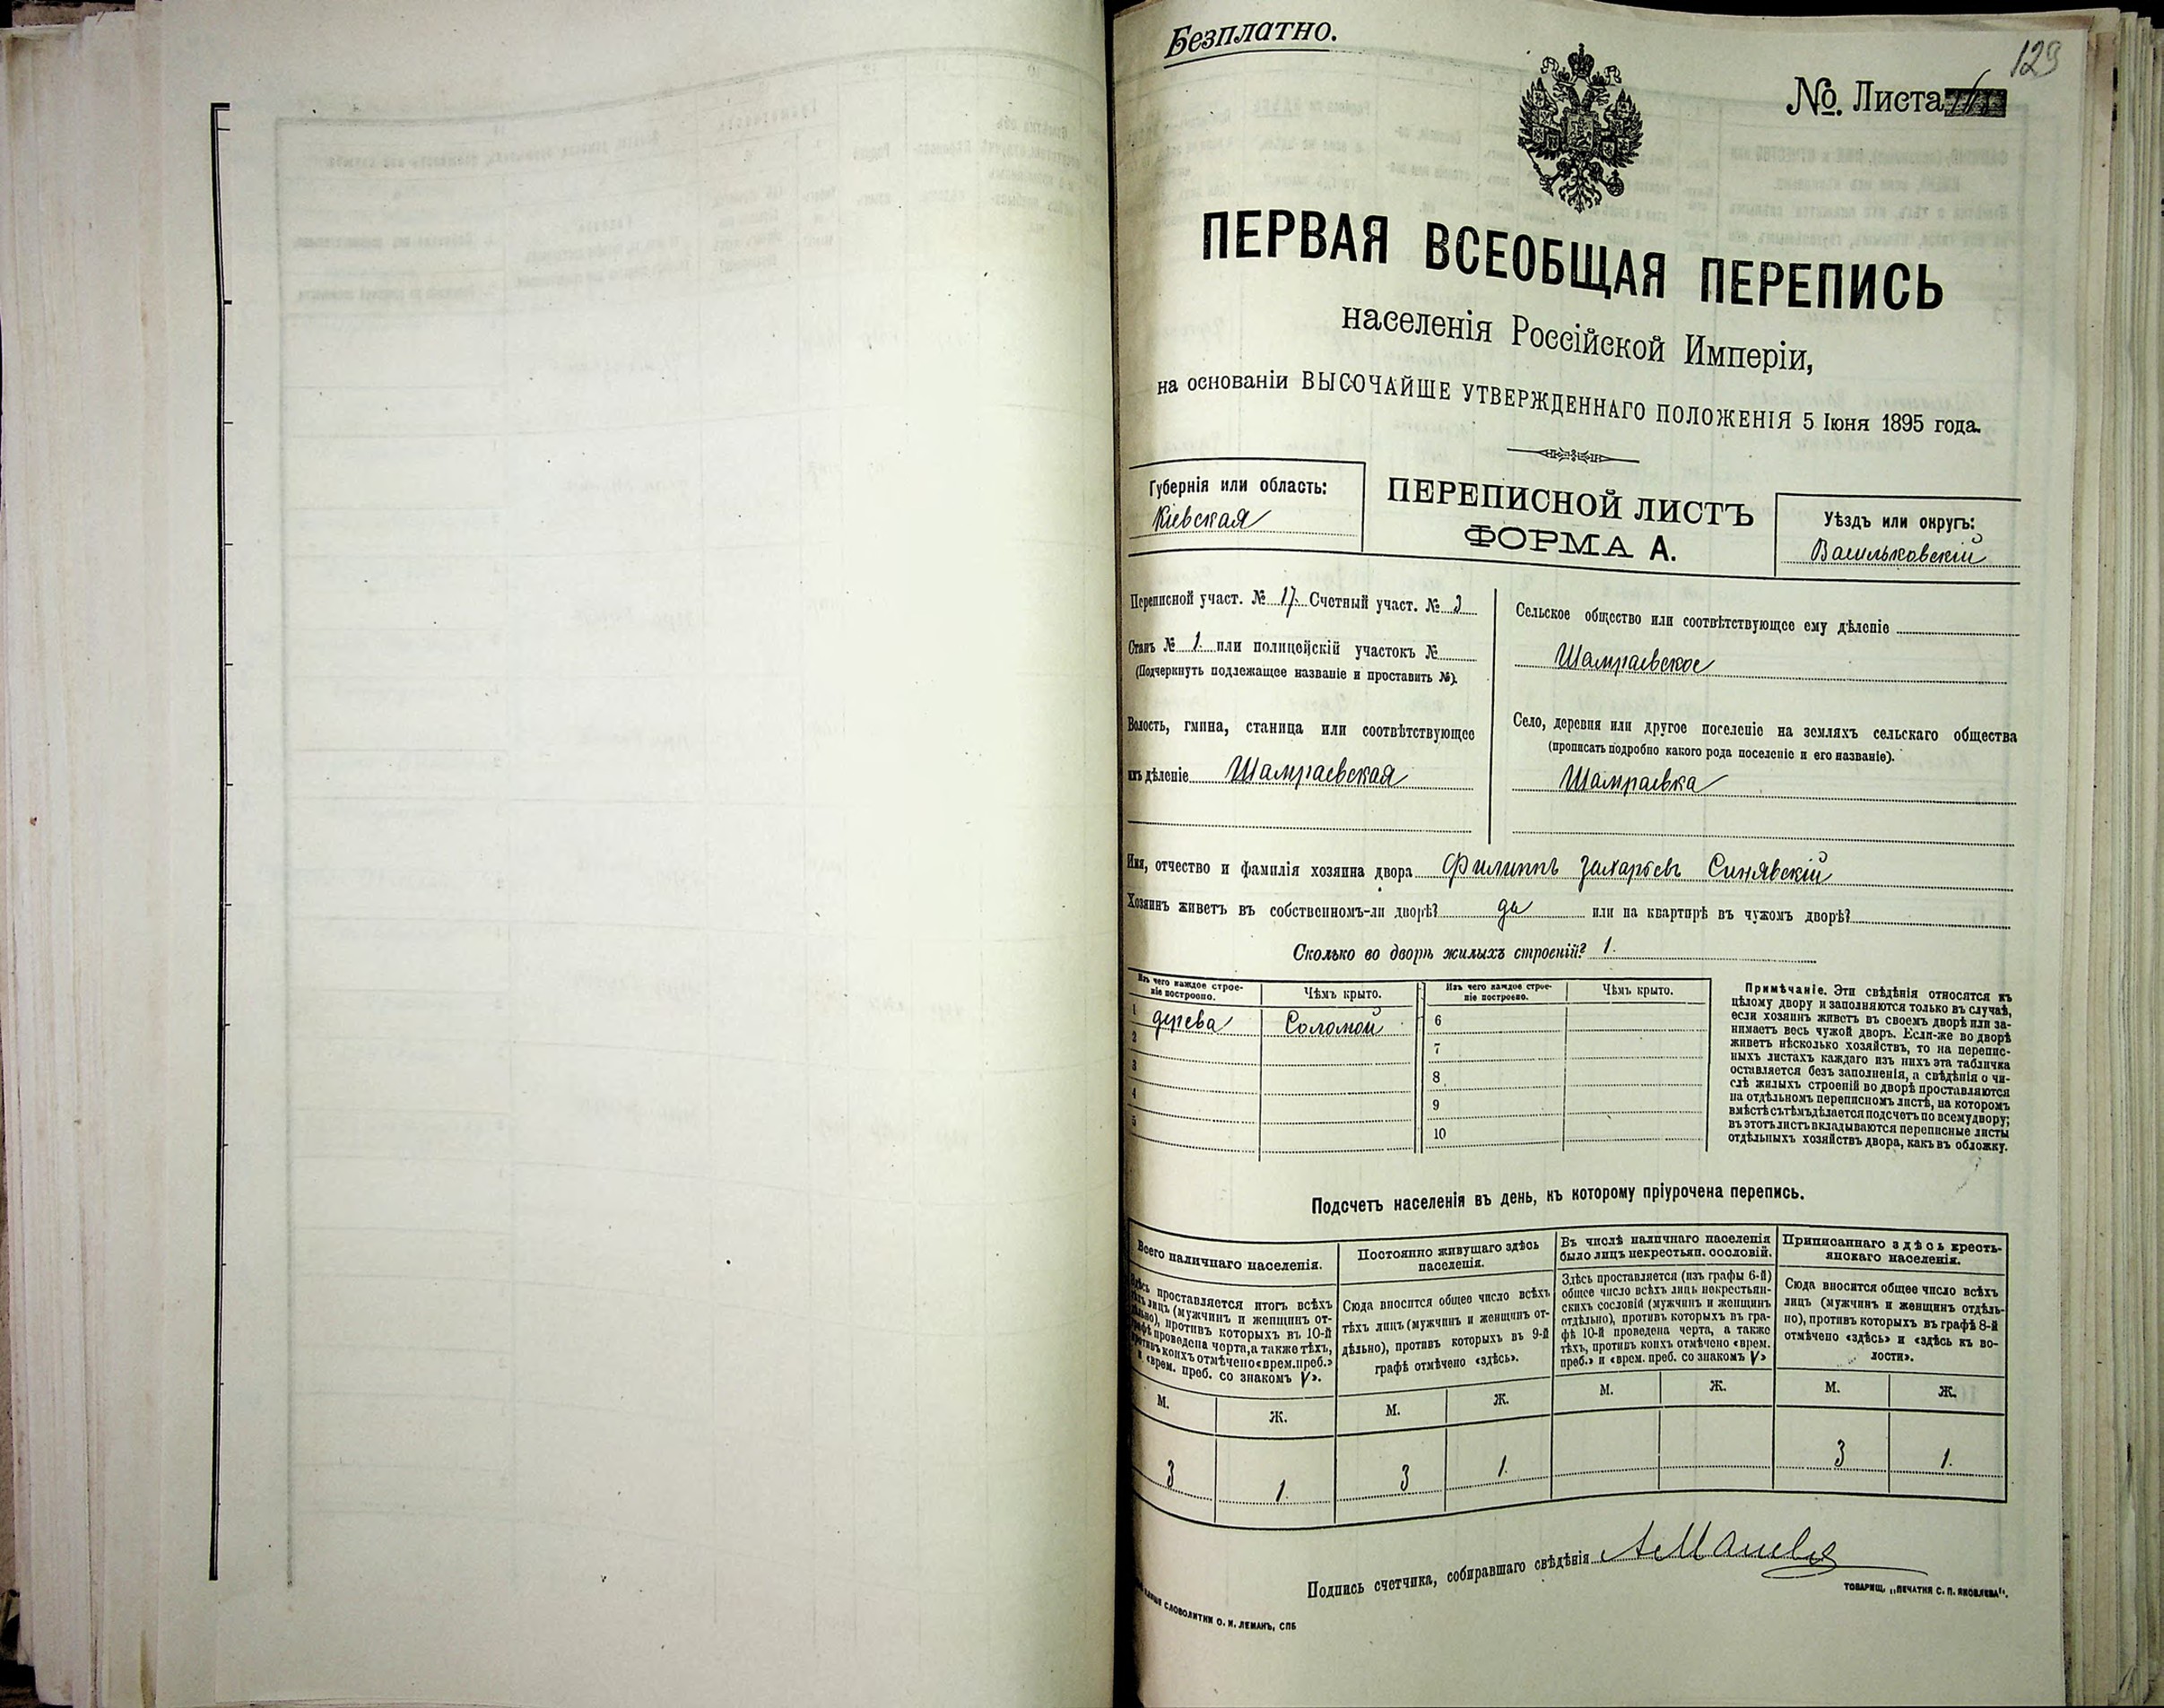 Безплатно.
129
№ Листа
ПЕРВАЯ ВСЕОБЩАЯ ПЕРЕПИСЬ
населенія Россійской Имперіи,
на основаніи ВЫСОЧАЙШЕ УТВЕРЖДЕННАГО ПОЛОЖЕНІЯ 5 Іюня 1895 года.
Губернія или область:
Кіевская
ПЕРЕПИСНОЙ ЛИСТЪ
ФОРМА А.
Уѣздъ или округъ:
Васильковскій
Переписной участ. № 17. Счетный участ. № 3
Станъ № 1. или полицейскій участокъ №
(Подчеркнуть подлежащее названіе и проставить №).
Волость, гмина, станица или соотвѣтствующее
имъ дѣленіе Шамраевская
Сельское общество или соотвѣтствующее ему дѣленіе
Шамраевское
Село, деревня или другое поселеніе на земляхъ сельскаго общества
(прописать подробно какого рода поселеніе и его названіе).
Шамраевка
Имя, отчество и фамилія хозяина двора Филиппъ Захарьевъ Синявскій
Хозяинъ живетъ въ собственномъ-ли дворѣ? да или на квартирѣ въ чужомъ дворѣ?
Сколько во дворѣ жилыхъ строеній? 1.
Изъ чего каждое строе-
ніе построено.
Чѣмъ крыто.
Изъ чего каждое строе-
ніе построено.
Чѣмъ крыто.
1 дерева Соломой 6
2 7
3 8
4 9
5 10
Примѣчаніе. Эти свѣдѣнія относятся къ
цѣлому двору и заполняются только въ случаѣ,
если хозяинъ живетъ въ своемъ дворѣ или за-
нимаетъ весь чужой дворъ. Если-же во дворѣ
живетъ нѣсколько хозяйствъ, то на перепис-
ныхъ листахъ каждаго изъ нихъ эта табличка
оставляется безъ заполненія, а свѣдѣнія о чи-
слѣ жилыхъ строеній во дворѣ проставляются
на отдѣльномъ переписномъ листѣ, на которомъ
вмѣстѣ съ тѣмъ дѣлается подсчетъ по всему двору;
въ этотъ листъ вкладываются переписные листы
отдѣльныхъ хозяйствъ двора, какъ въ обложку.
Подсчетъ населенія въ день, къ которому пріурочена перепись.
Всего наличнаго населенія.
Здѣсь проставляется итогъ всѣхъ
тѣхъ лицъ (мужчинъ и женщинъ от-
дѣльно), противъ которыхъ въ 10-й
графѣ проведена черта, а также тѣхъ,
противъ коихъ отмѣчено «врем. преб.»
и «врем. преб. со знакомъ V».
Постоянно живущаго здѣсь
населенія.
Сюда вносится общее число всѣхъ
тѣхъ лицъ (мужчинъ и женщинъ от-
дѣльно), противъ которыхъ въ 9-й
графѣ отмѣчено «здѣсь».
Въ числѣ наличнаго населенія
было лицъ некрестьян. сословій.
Здѣсь проставляется (изъ графы 6-й)
общее число всѣхъ лицъ некрестьян-
скихъ сословій (мужчинъ и женщинъ
отдѣльно), противъ которыхъ въ гра-
фѣ 10-й проведена черта, а также
тѣхъ, противъ коихъ отмѣчено «врем.
преб.» и «врем. преб. со знакомъ V»
Приписаннаго здѣсь кресть-
янскаго населенія.
Сюда вносится общее число всѣхъ
лицъ (мужчинъ и женщинъ отдѣль-
но), противъ которыхъ въ графѣ 8-й
отмѣчено «здѣсь» и «здѣсь къ во-
лости».
М. Ж. М. Ж. М. Ж. М. Ж.
3 1 3 1. 3 1.
Подпись счетчика, собиравшаго свѣдѣнія
СЛОВОЛИТНИ О. И. ЛЕМАНЪ, СПБ
ТОВАРИЩ. „ПЕЧАТНЯ С. П. ЯКОВЛЕВА".